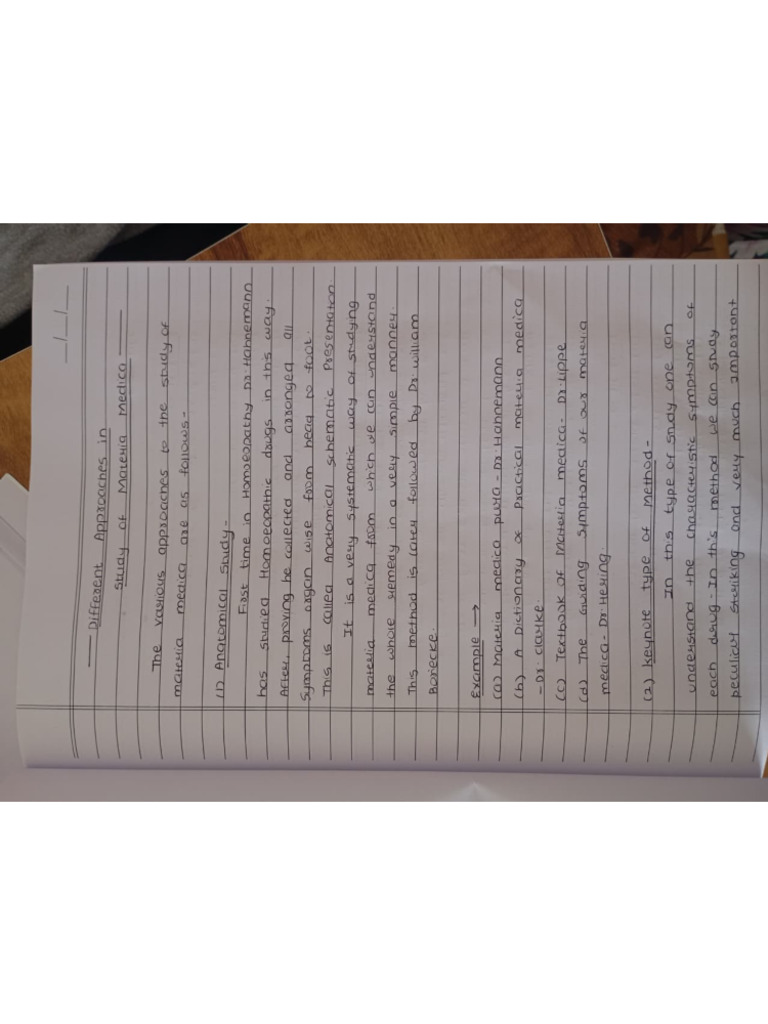 Different Approaches in
Study of Materia Medica
The various approaches to the study of
materia medica are as follows-
(1) Anatomical Study-
First time in Homoeopathy Dr. Hahnemann
has studied Homoeopathic drugs in this way.
After, proving he collected and arranged all
Symptoms organ wise from head to foot.
This is called Anatomical schematic Presentation.
It is a very systematic way of studying
materia medica from which we can understand
the whole remedy in a very simple manner.
This method is later followed by Dr. William
Boriecke.
Example →
(a) Materia medica pura - Dr. Hahnemann
(b) A Dictionary of Practical materia medica
- Dr. Clarke.
(c) Textbook of Materia medica - Dr. Lippe
(d) The Guiding Symptoms of our materia
medica - Dr. Hering
(2) Keynote type of Method -
In this type of study one can
understand the characteristic symptoms of
each drug - In this method we can study
peculiar striking and very much important